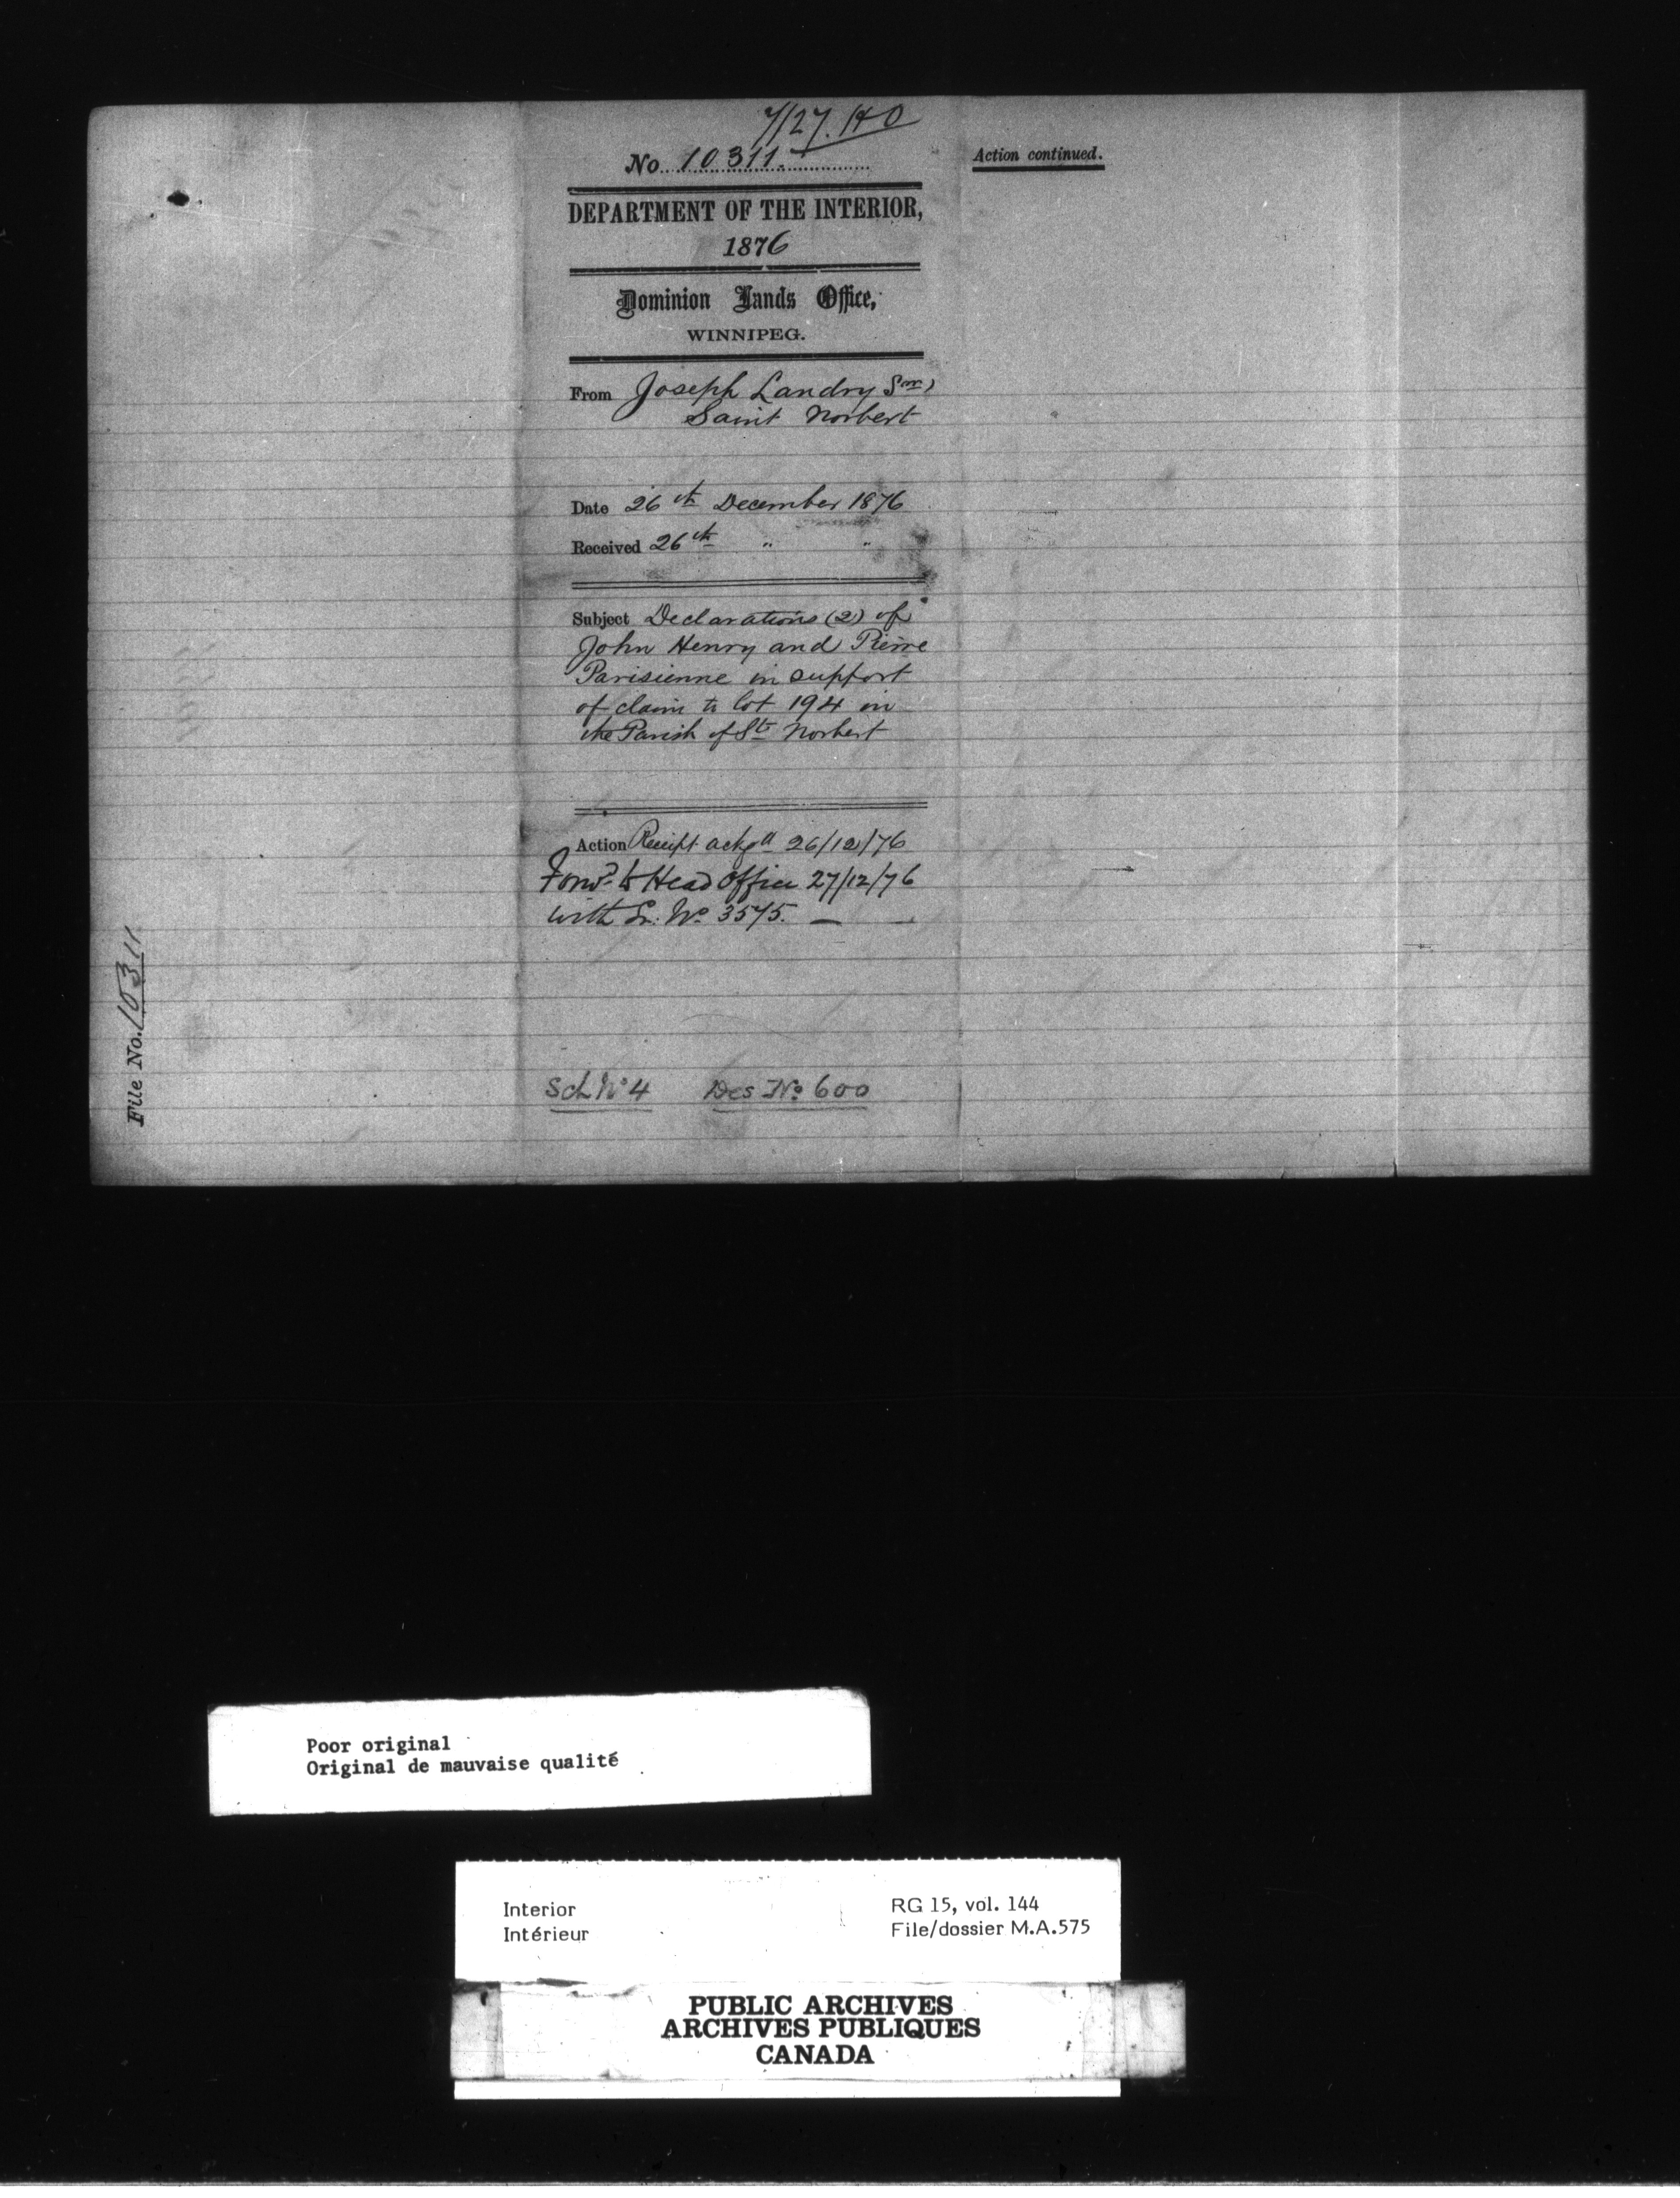 7/27.140
No. 10311.
DEPARTMENT OF THE INTERIOR,
1876
Dominion Lands Office,
WINNIPEG.
From Joseph Landry Snr
Saint Norbert
Date 26th December 1876
Received 26th " "
Subject Declarations (2) of
John Henry and Pierre
Parisienne in support
of claim to lot 194 in
the Parish of St Norbert
Action Receipt ackgd 26/12/76
Forwd to Head Office 27/12/76
with Lr. No 3575. —
Sch No 4 Des No 600
Action continued.
File No. 10311
Poor original
Original de mauvaise qualité
Interior
Intérieur
RG 15, vol. 144
File/dossier M.A.575
PUBLIC ARCHIVES
ARCHIVES PUBLIQUES
CANADA